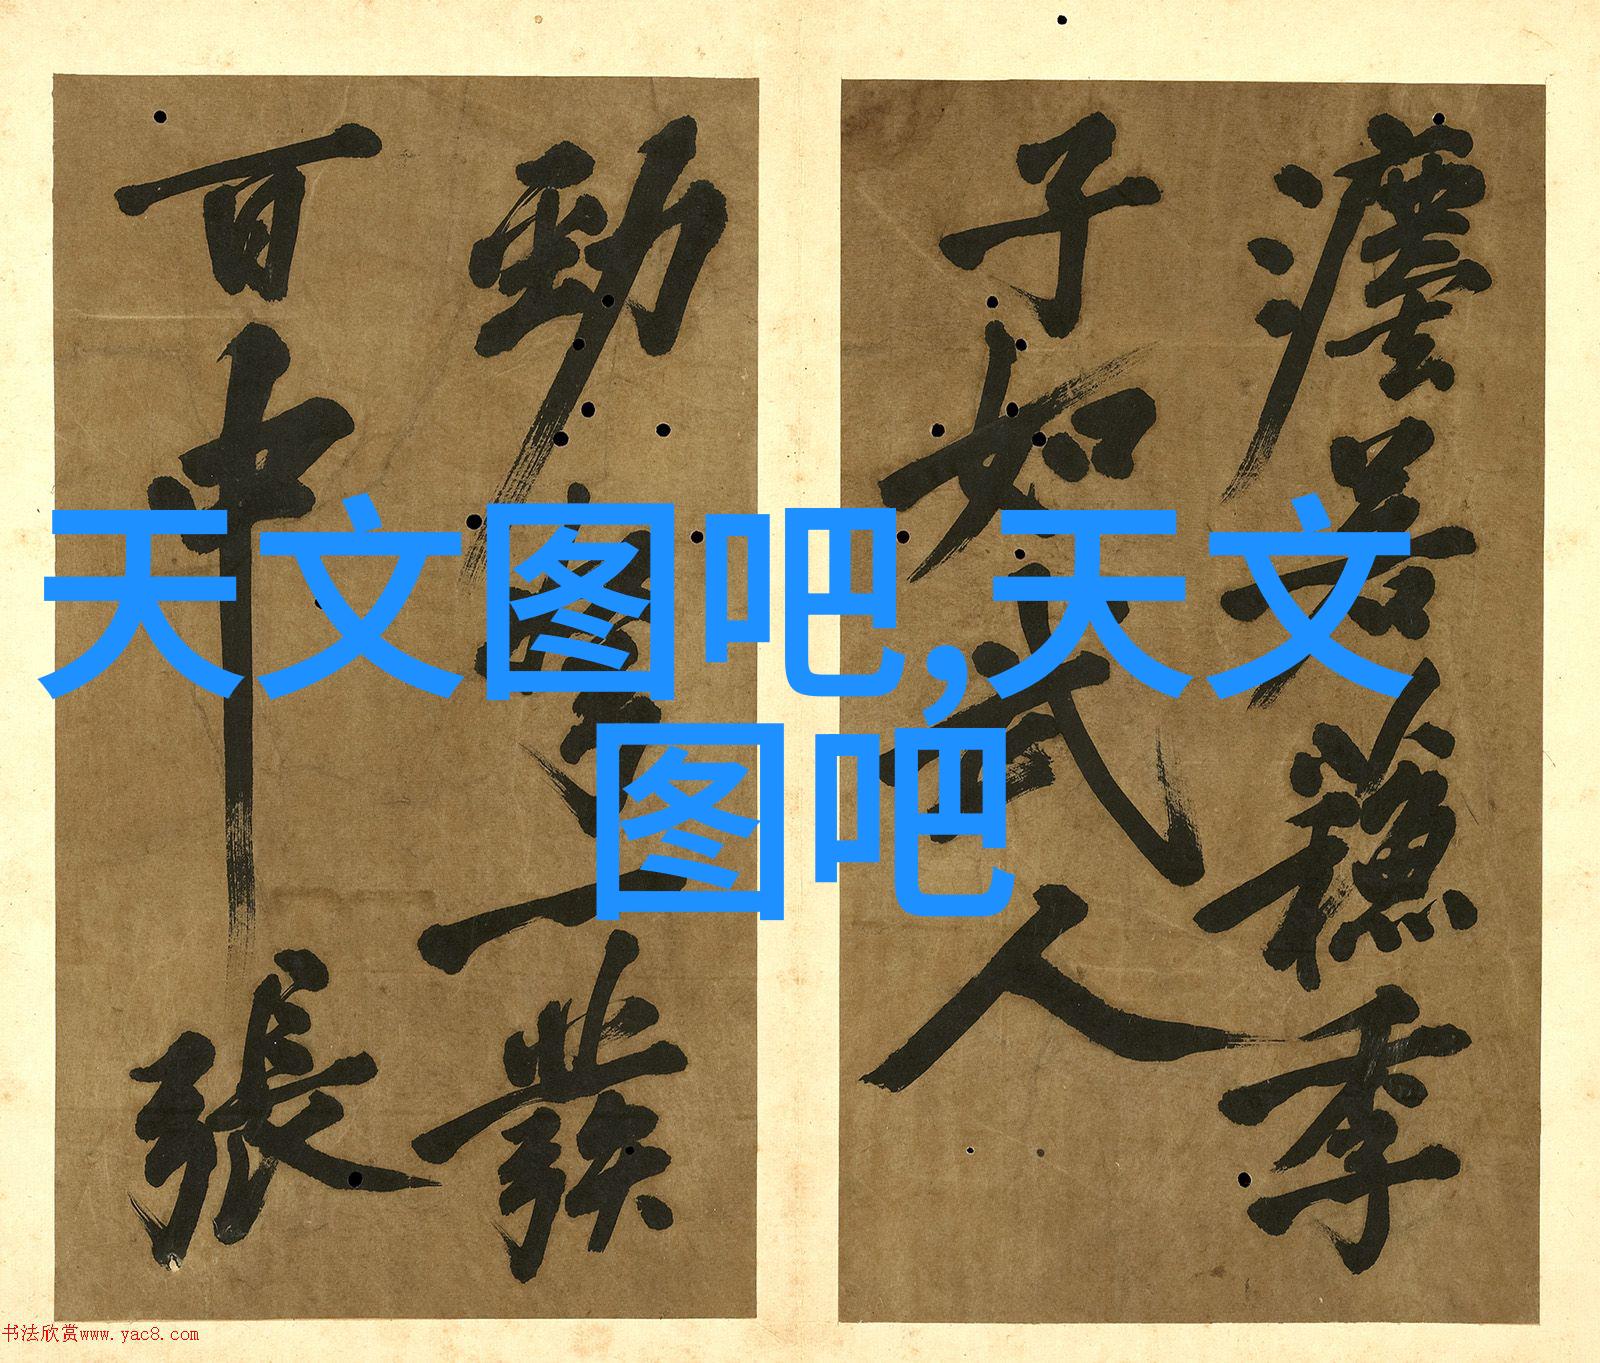 瀍若蘓季
子如武人
勁
一發
百中張
天文图吧,天文
图吧
书法欣赏www.yac8.com